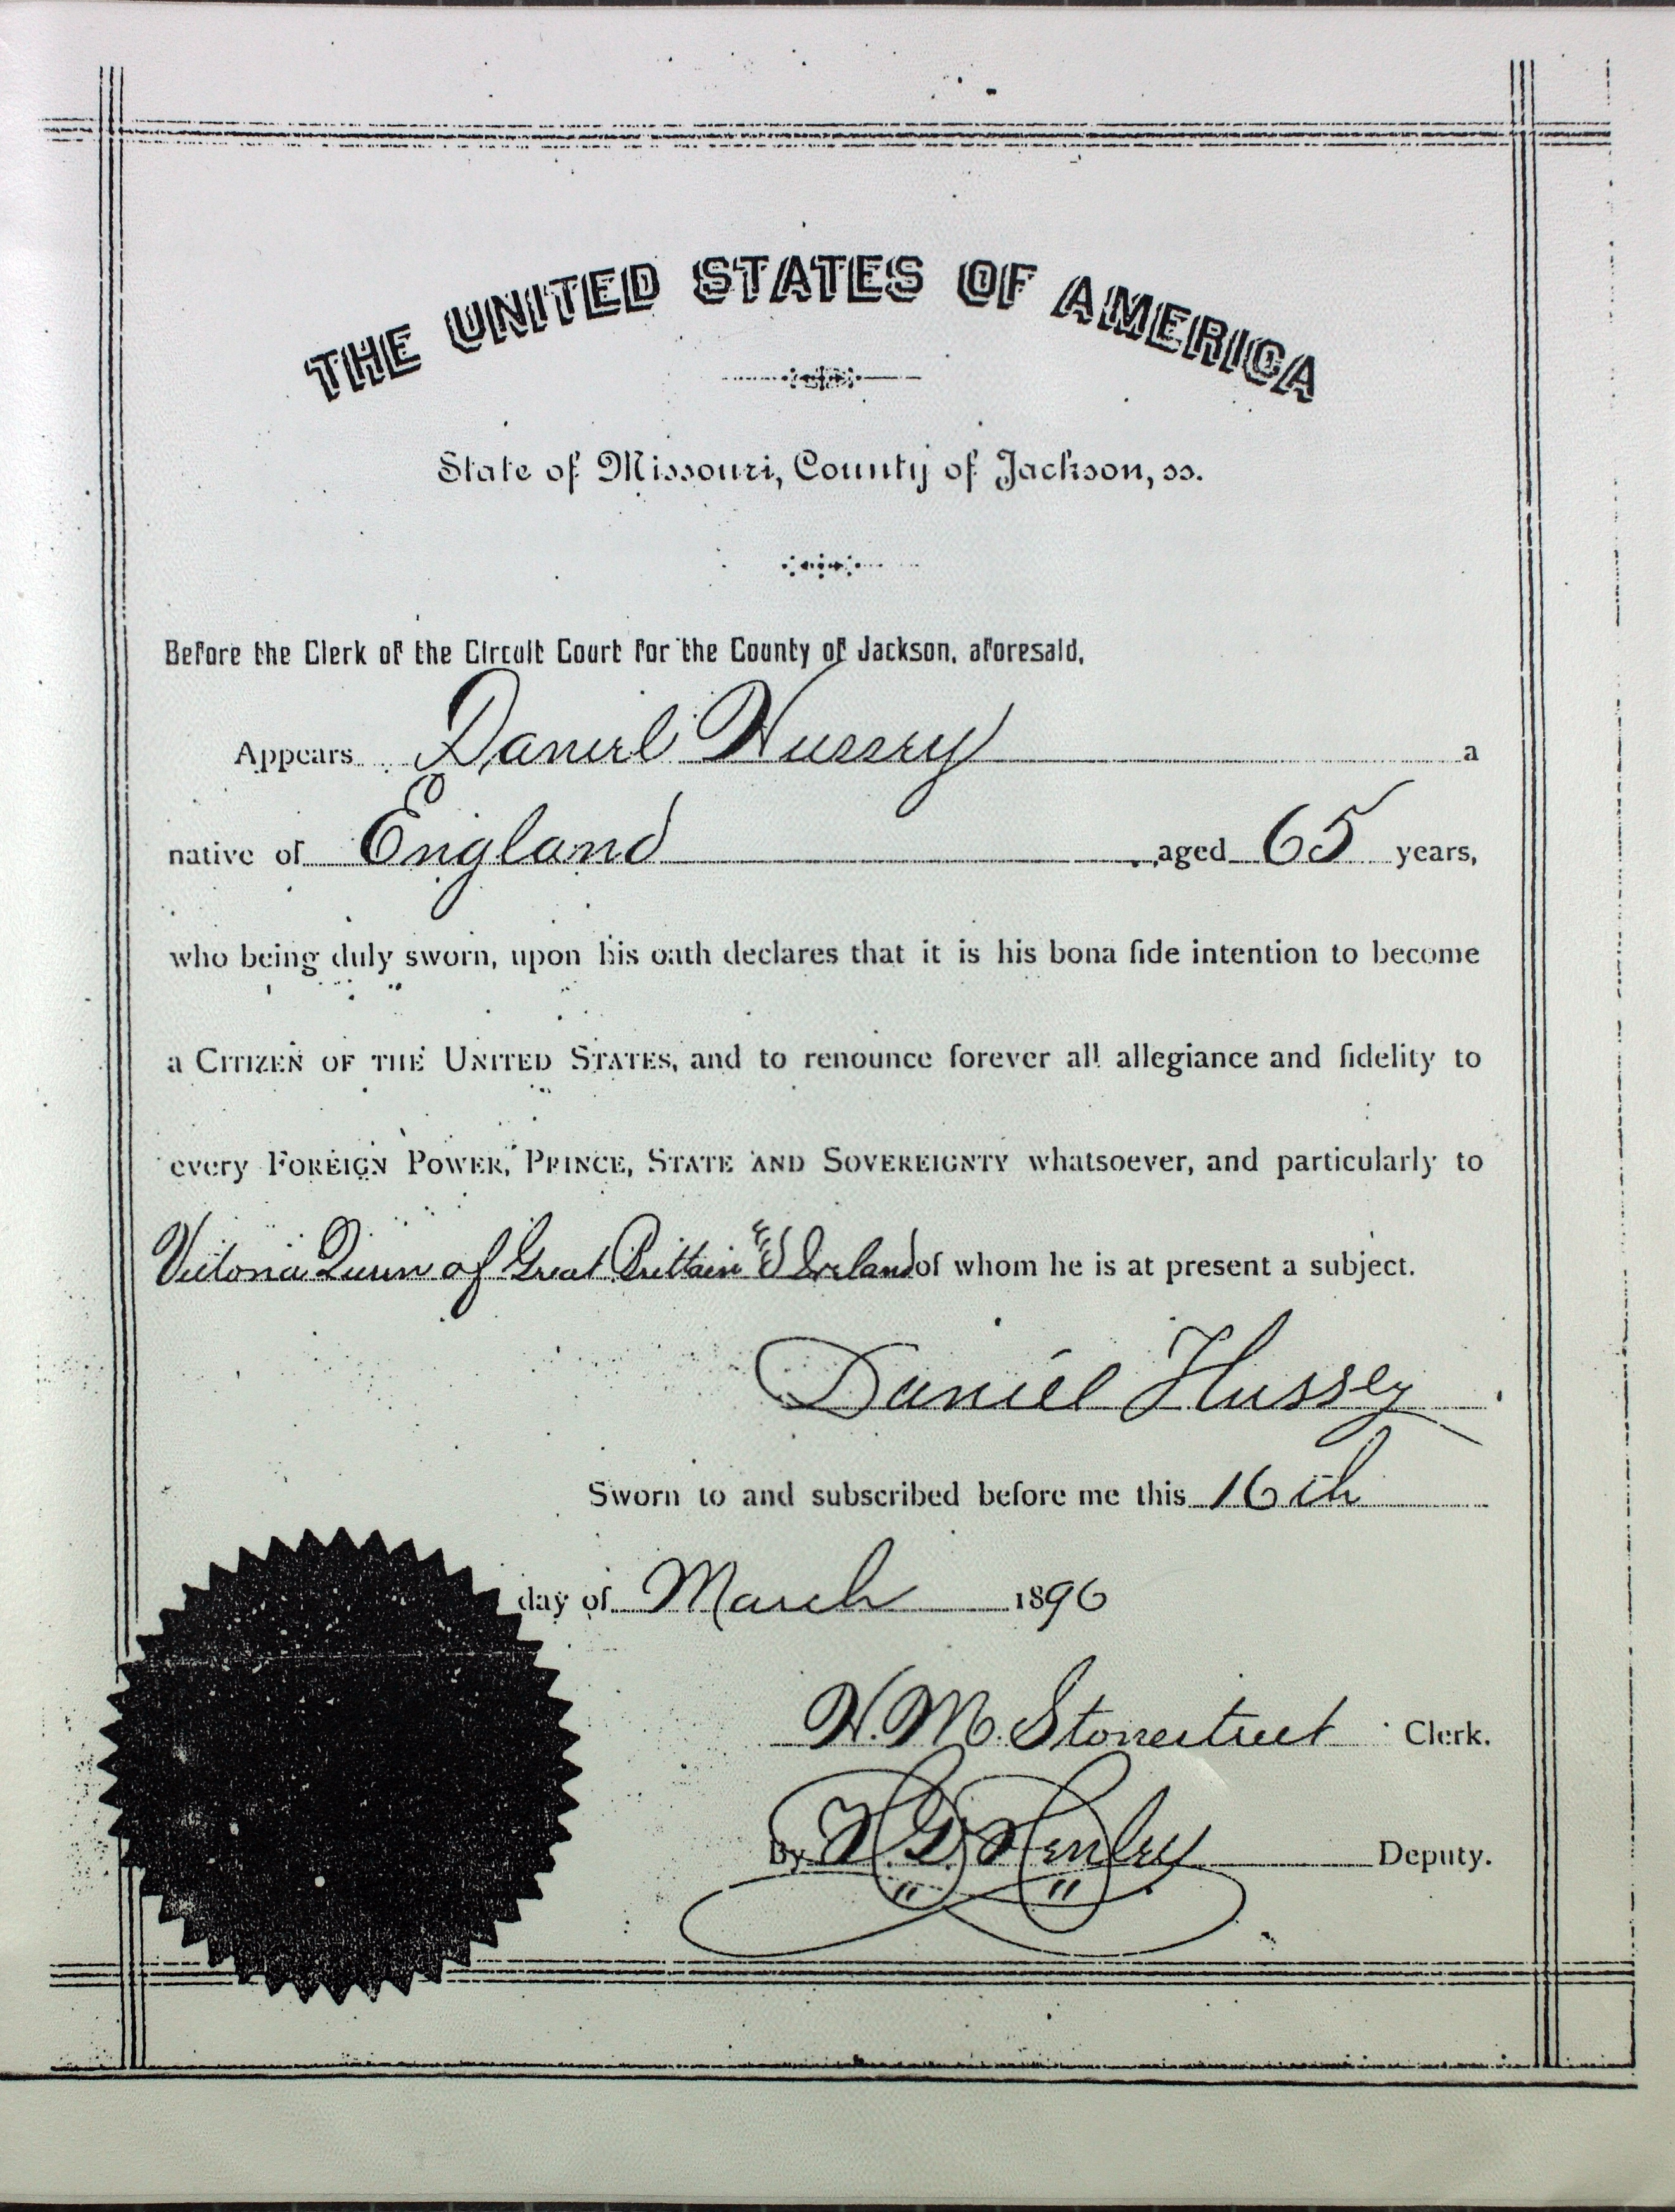 THE UNITED STATES OF AMERICA
State of Missouri, County of Jackson, ss.
Before the Clerk of the Circuit Court for the County of Jackson, aforesaid,
Appears Daniel Hussey a
native of England aged 65 years,
who being duly sworn, upon his oath declares that it is his bona fide intention to become
a CITIZEN OF THE UNITED STATES, and to renounce forever all allegiance and fidelity to
every FOREIGN POWER, PRINCE, STATE AND SOVEREIGNTY whatsoever, and particularly to
Victoria Queen of Great Brittain & Ireland of whom he is at present a subject.
Daniel Hussey
Sworn to and subscribed before me this 16th
day of March 1896
H. M. Stonestreet Clerk.
By Henley Deputy.